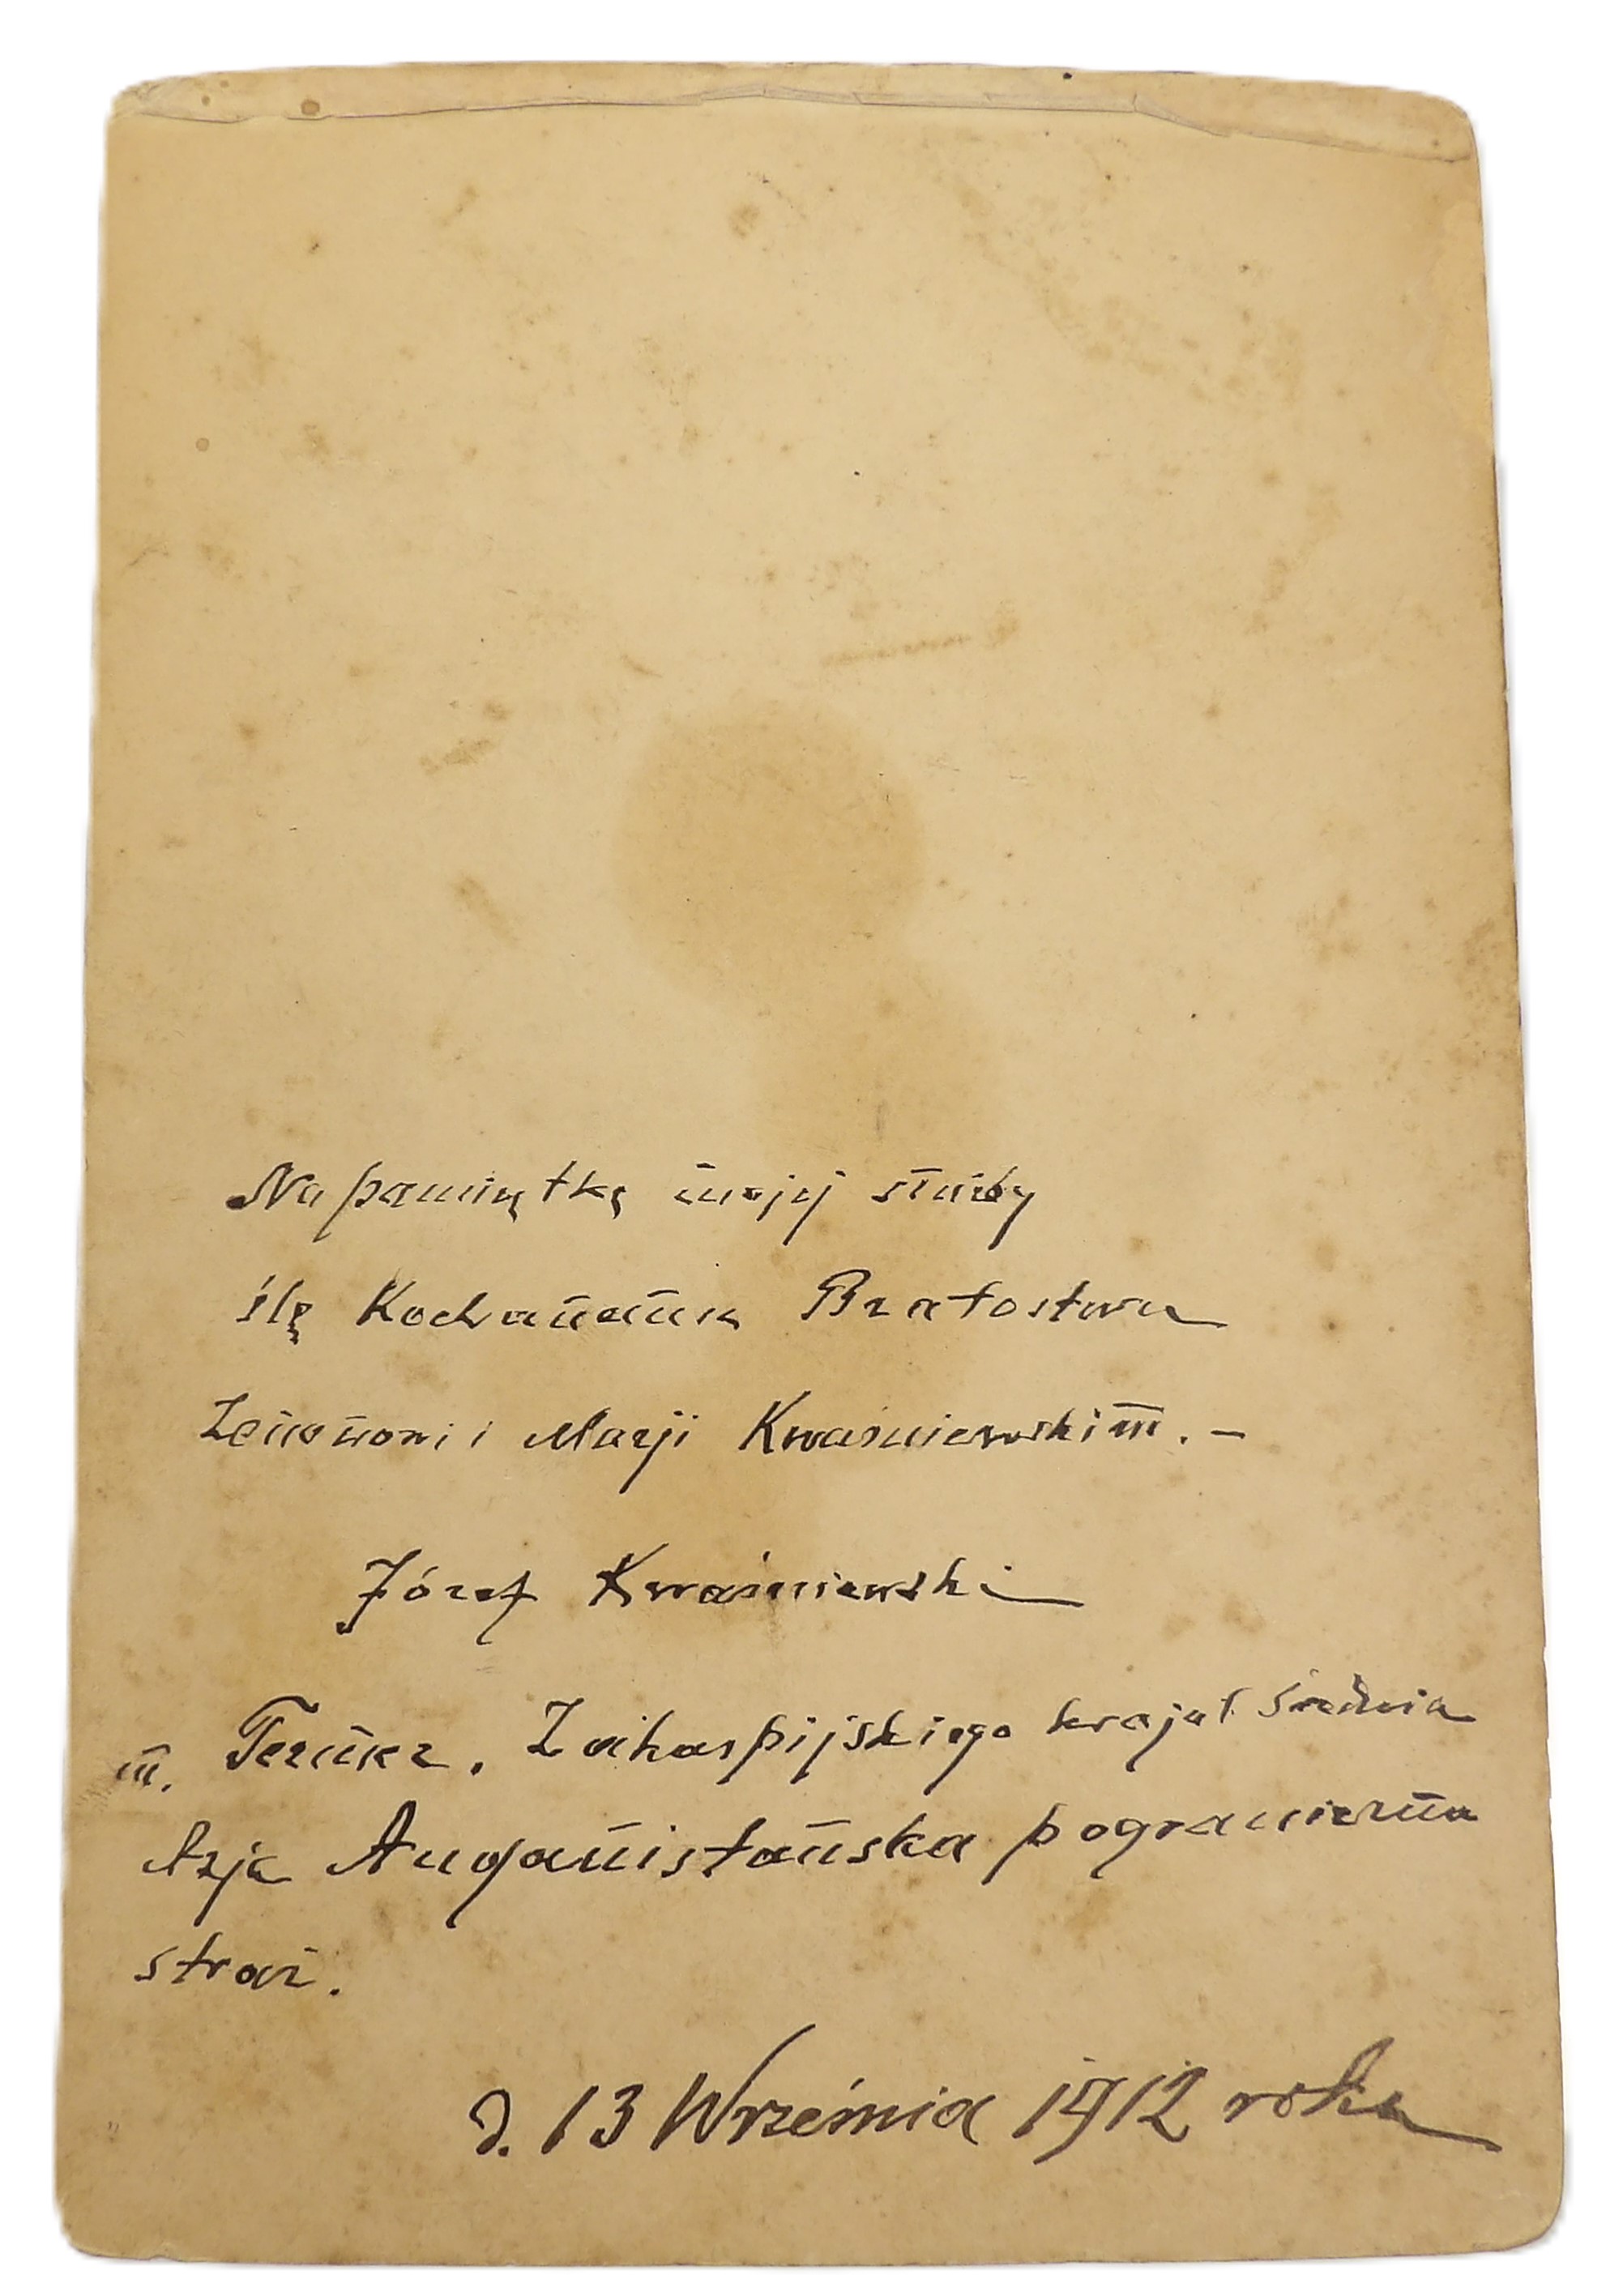 Na pamiątkę mojej służby
ślę Kochanemu Bratostwu
Zenonowi i Marji Kwaśniewskim. –
Józef Kwaśniewski
m. Zakaspijskiego kraju Średnia
Azja Auganistańska pograniczna
straż.
d. 13 Września 1912 roku